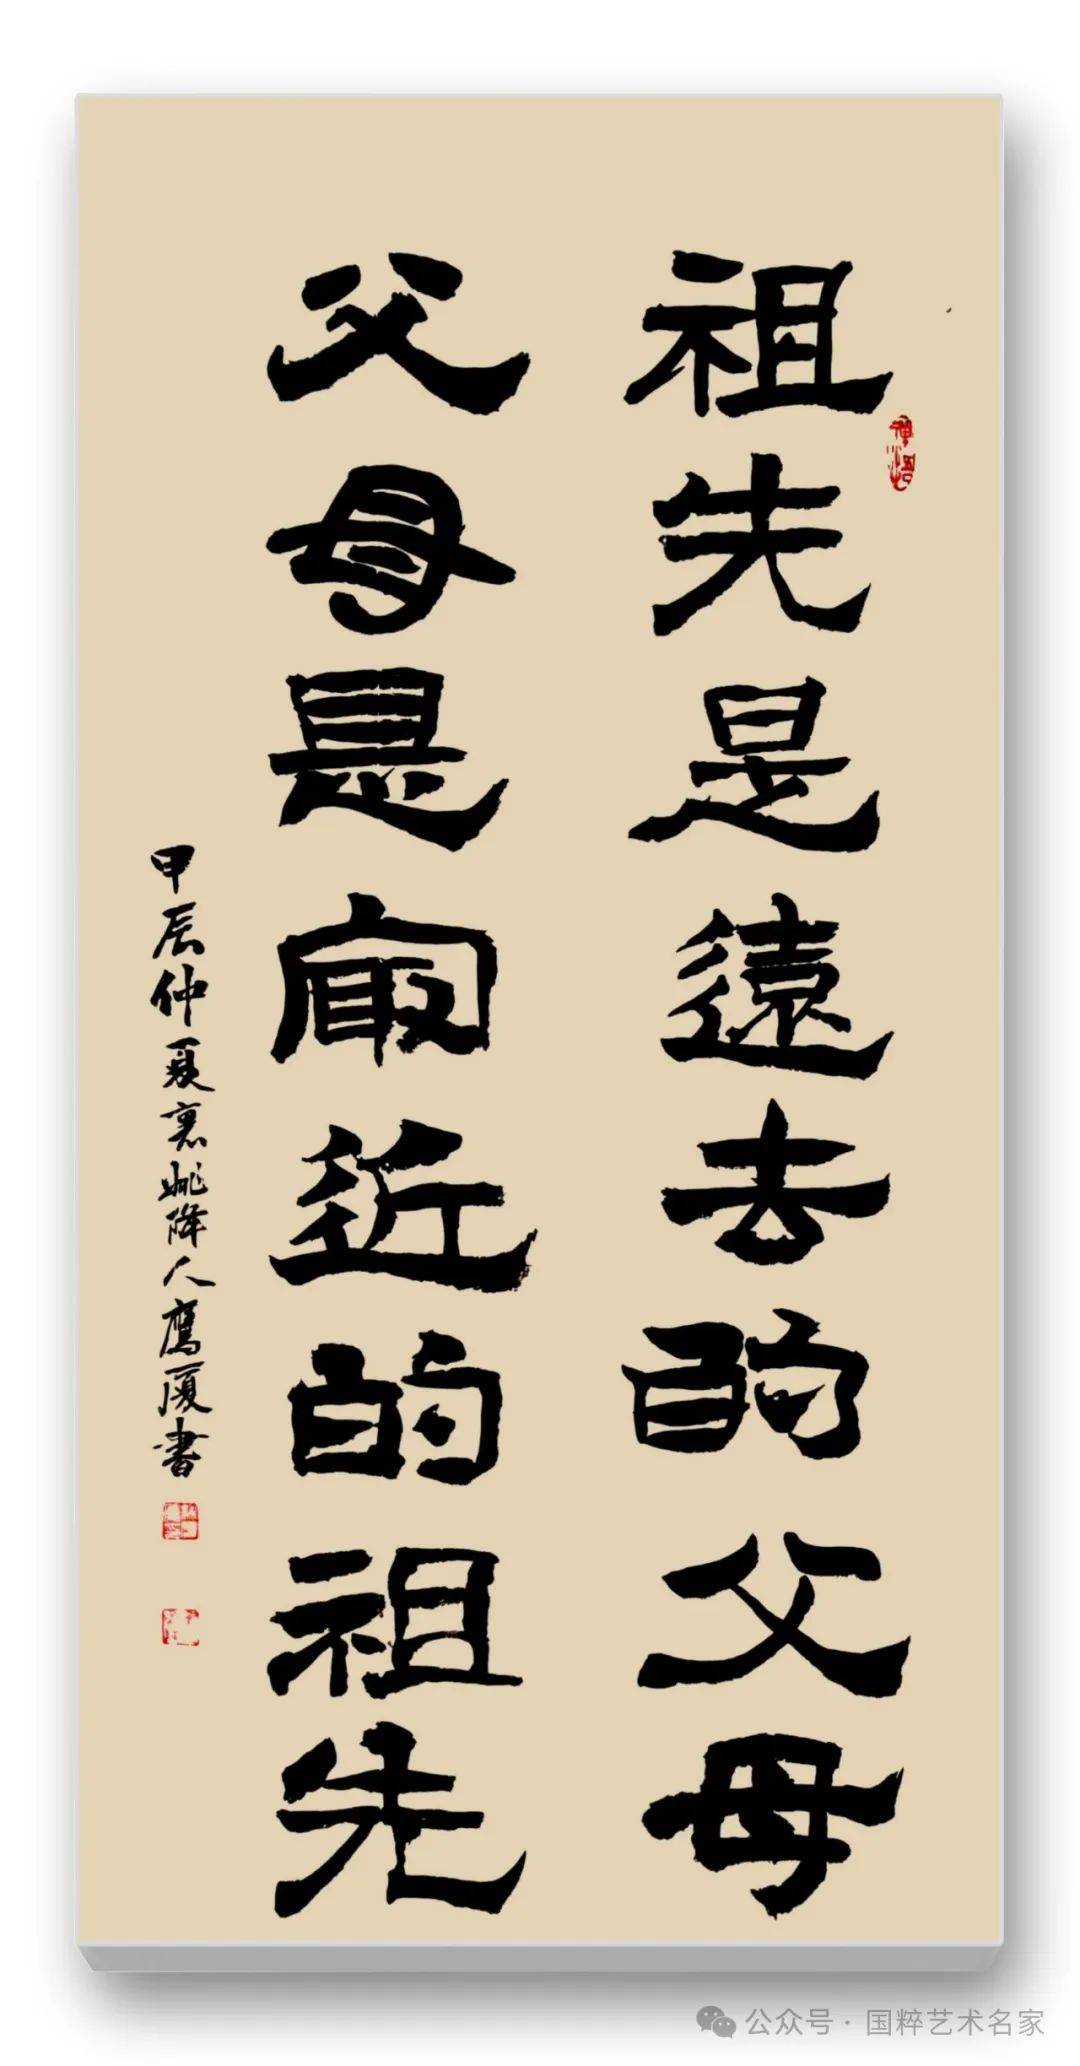 祖先是遠去的父母
父母是最近的祖先
甲辰仲夏襄姚降人鹰厦書
公众号·国粹艺术名家